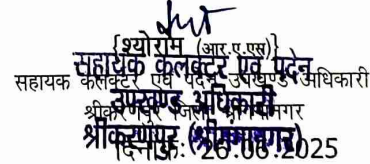 {श्योराम (आर.ए.एस)}
सहायक कलक्टर एवं पदेन
सहायक कलक्टर एवं पदेन उपखण्ड अधिकारी
उपखण्ड अधिकारी
श्रीकरणपुर जिला श्रीगंगानगर
श्रीकरणपुर (श्रीगंगानगर)
दिनांक: 26.06.2025